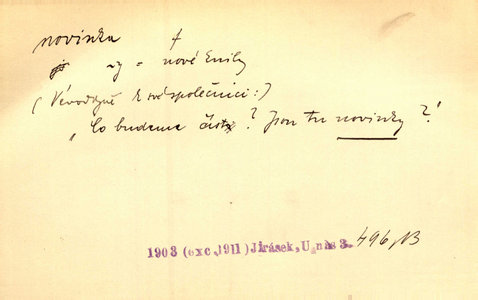 novinka f
-y = nové knihy
(Vévodkyně k své společnici:)
„Co budeme číst? Jsou tu novinky?"
1903 (exc. 1911) Jirásek, U nás 3. 496, NB